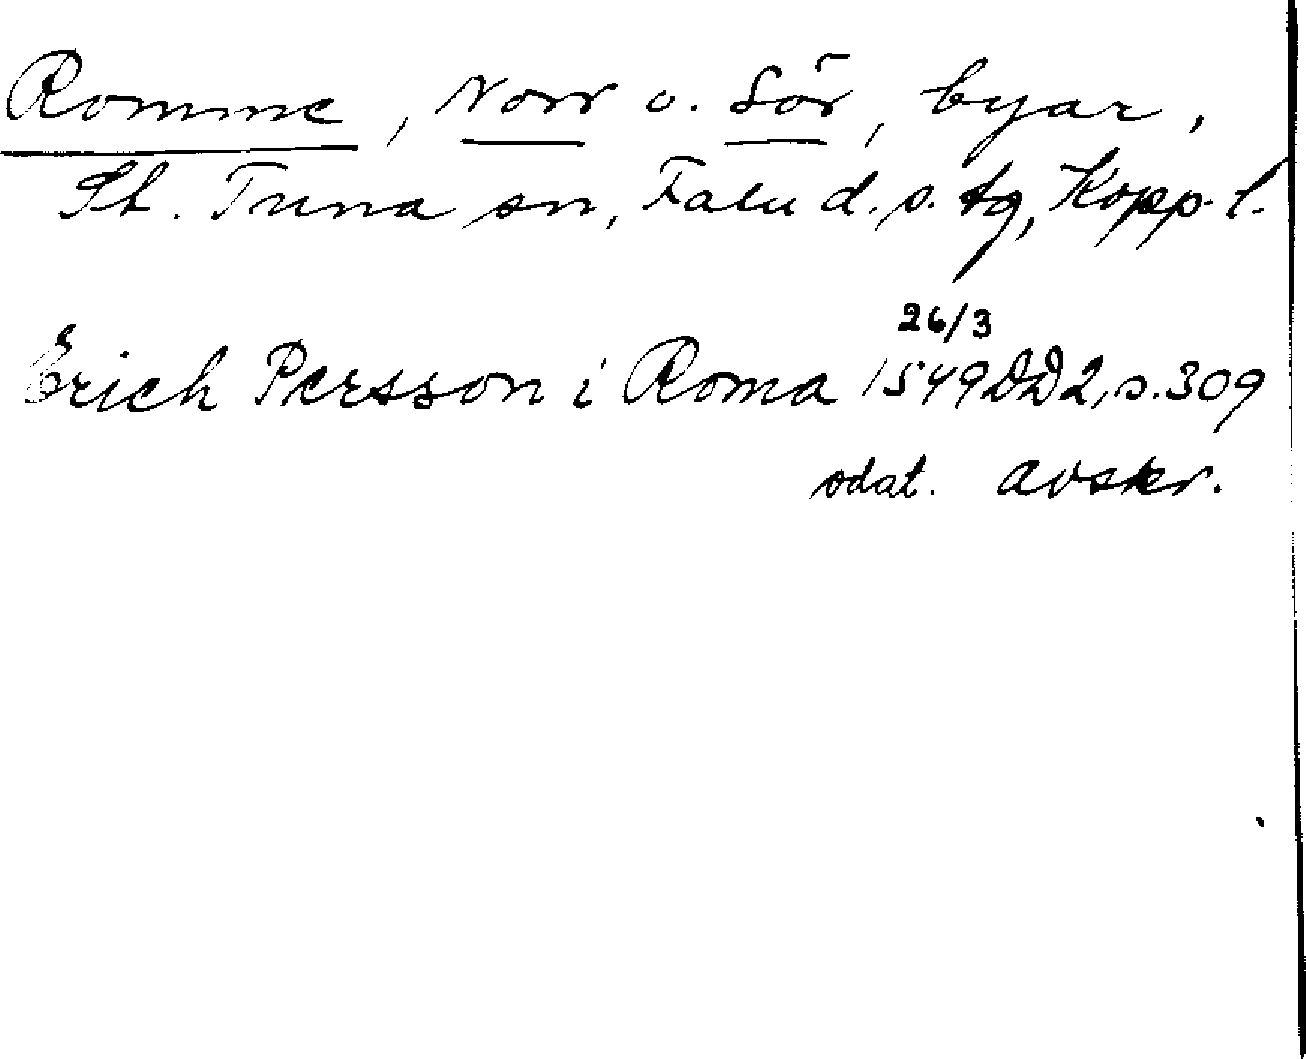 Romme, Norr o. Sör, byar,
St. Tuna sn, Falu d.s. tg, Kopp. l.
26/3
Erich Persson i Roma 1549 DD2, s. 309
odat. avskr.